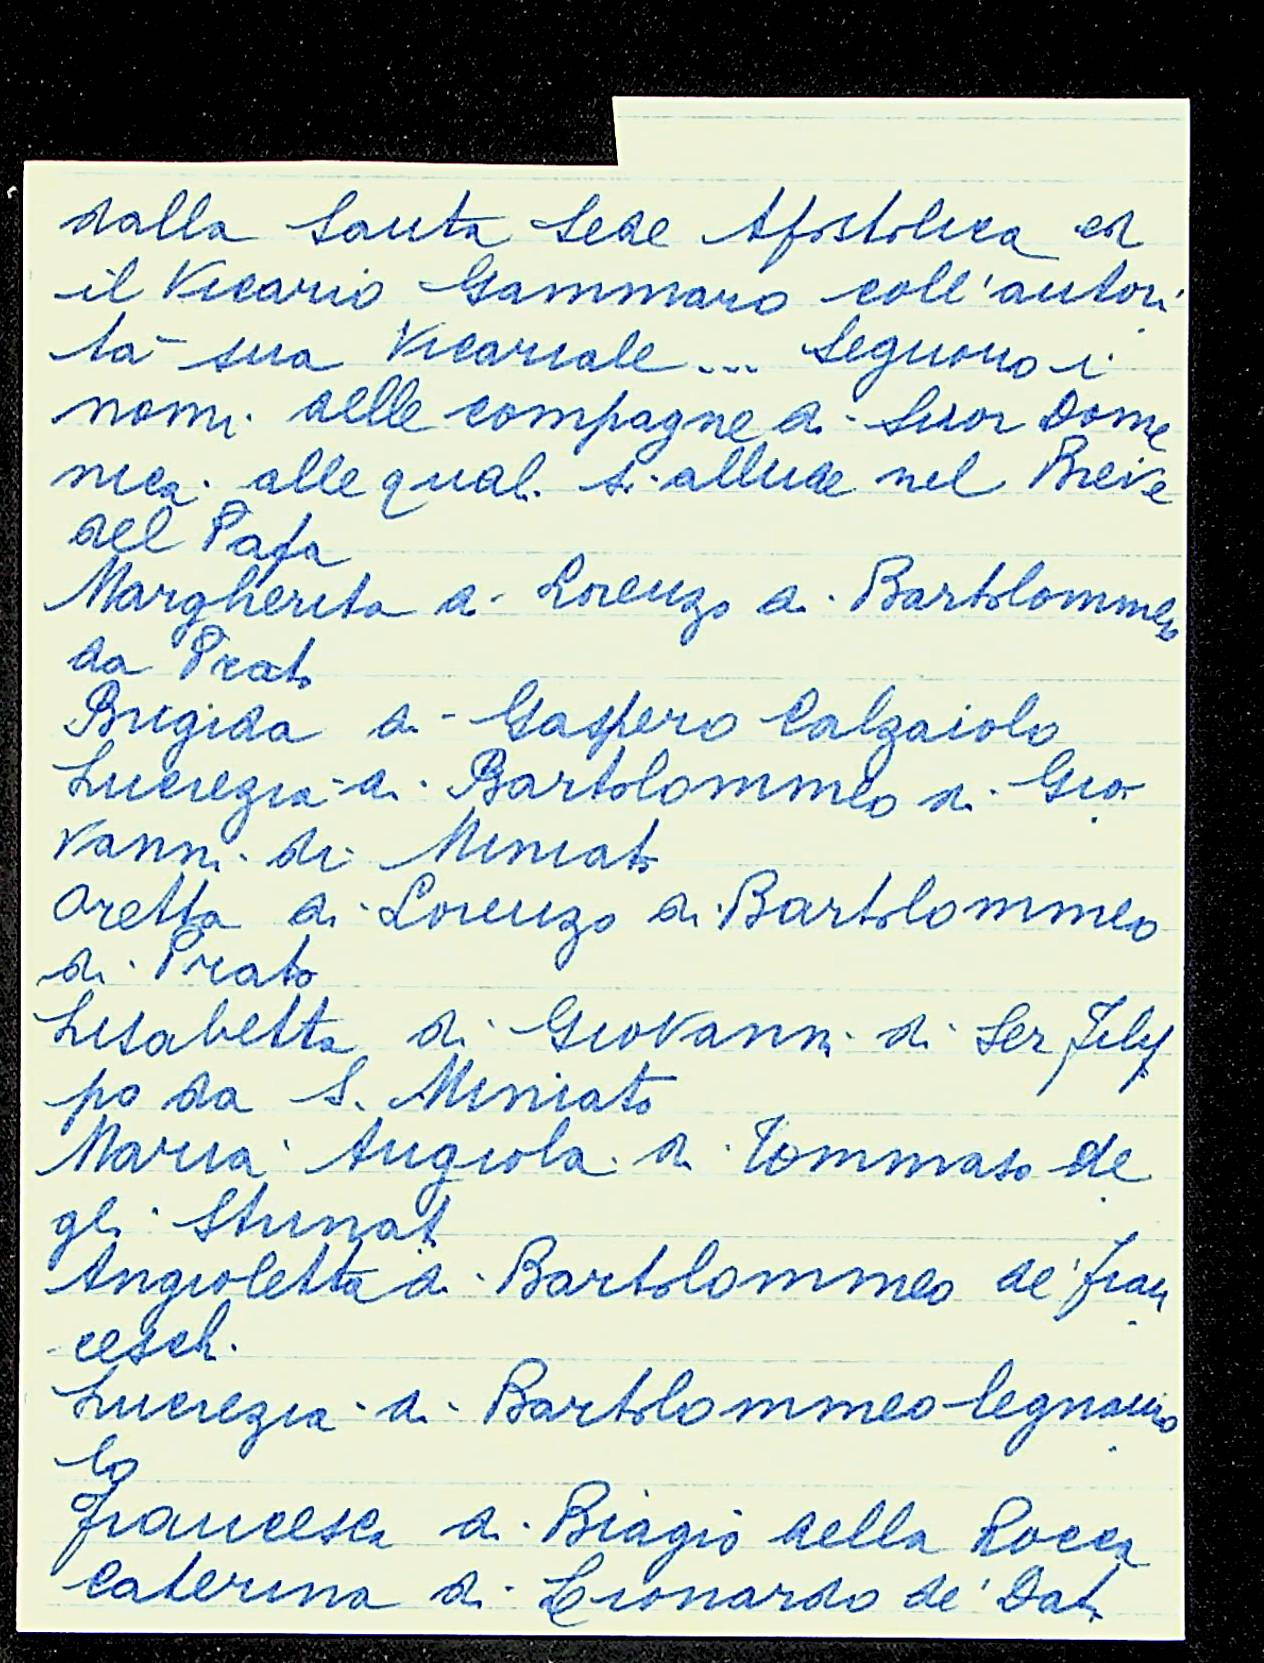 dalla Santa Sede Apostolica ed
il Vicario Gammaro coll'autori
tà sua Vicariale... Seguono i
nomi delle compagne di Suor Dome
nica alle quali si allude nel Breve
del Papa
Margherita di Lorenzo di Bartolommeo
da Prato
Brigida di Gaspero Calzaiolo
Lucrezia di Bartolommeo di Gio
vanni di Miniato
Oretta di Lorenzo di Bartolommeo
di Prato
Lisabetta di Giovanni di Ser Filip
po da S. Miniato
Maria Angiola di Tommaso de
gli Strinati
Angioletta di Bartolommeo de' Fran
ceschi
Lucrezia di Bartolommeo legnaiuo
lo
Francesca di Biagio della Rocca
Caterina di Lionardo de' Dati